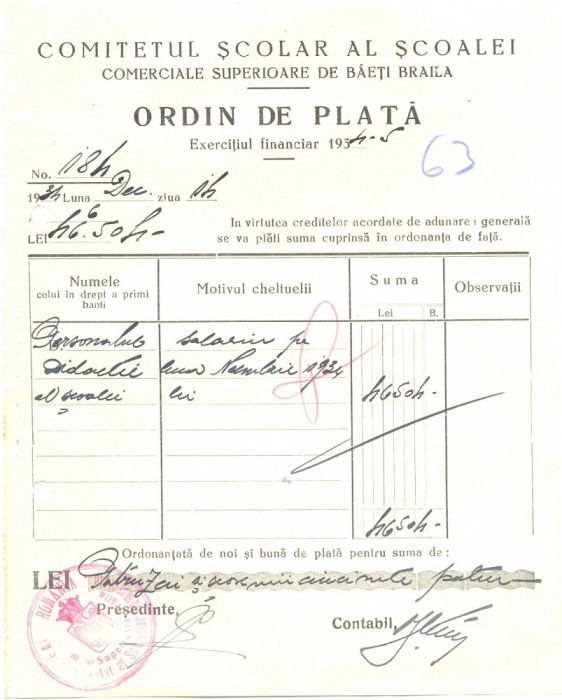 COMITETUL ȘCOLAR AL ȘCOALEI
COMERCIALE SUPERIOARE DE BĂEȚI BRAILA
ORDIN DE PLATĂ
Exercițiul financiar 1934-5
63
No. 184
1934 Luna Dec. ziua 14
LEI 46.504-
In virtutea creditelor acordate de adunarea generală
se va plăti suma cuprinsă în ordonanța de față.
Numele
celui în drept a primi
banii
Motivul cheltuelii
Suma
Lei B.
Observații
Personalul salariu pe
Didactic luna Noembrie 1934
al școalei lei 46504-
46504-
Ordonanțată de noi și bună de plată pentru suma de :
LEI Patruzeci și șase mii cinci sute patru
Președinte,
Contabil,
ROMÂNIA